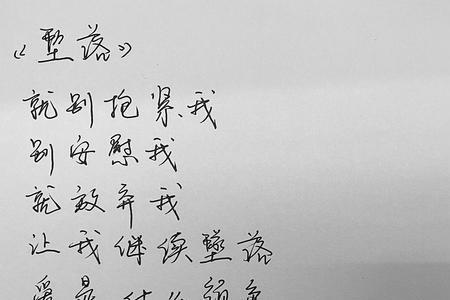 《堕落》
就别抱紧我
别安慰我
就放弃我
让我继续堕落